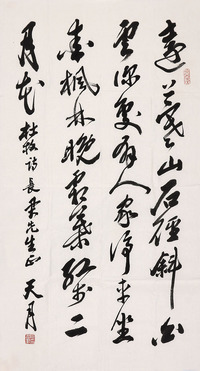 遠上寒山石徑斜白
雲深處有人家停車坐
愛楓林晚霜葉紅於二
月花 杜牧诗 長 先生正 天月